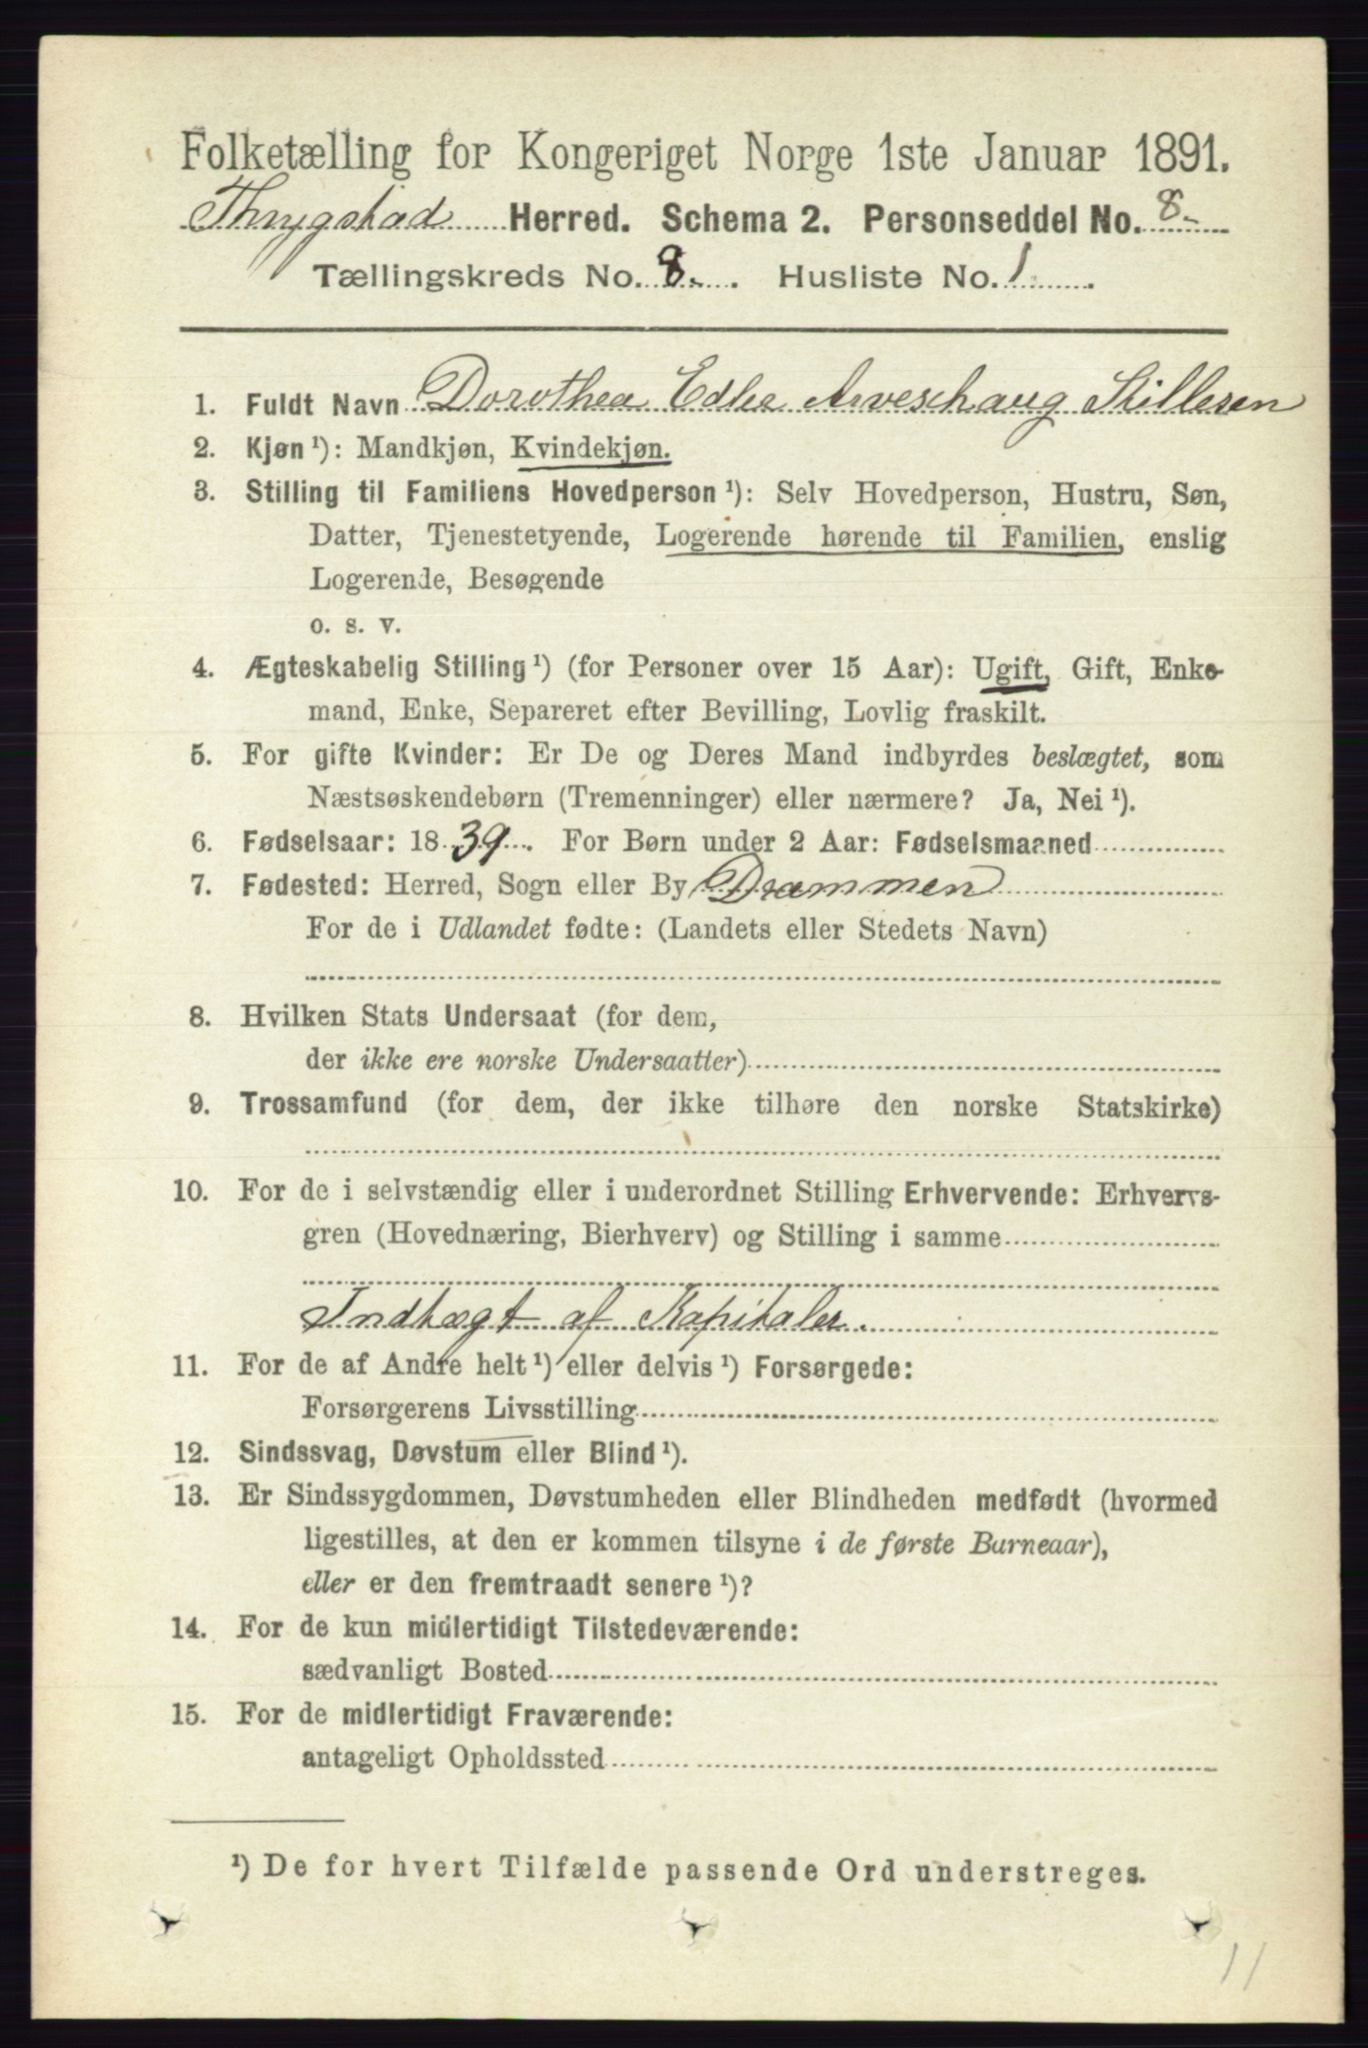 Folketælling for Kongeriget Norge 1ste Januar 1891.
Thrygstad Herred. Schema 2. Personseddel No. 8.
Tællingskreds No. 8. Husliste No. 1
1. Fuldt Navn Dorothea Edle Arveschaug Stillesen
2. Kjøn ¹): Mandkjøn, Kvindekjøn.
3. Stilling til Familiens Hovedperson ¹): Selv Hovedperson, Hustru, Søn,
Datter, Tjenestetyende, Logerende hørende til Familien, enslig
Logerende, Besøgende
o. s. v.
4. Ægteskabelig Stilling ¹) (for Personer over 15 Aar): Ugift, Gift, Enke-
mand, Enke, Separeret efter Bevilling, Lovlig fraskilt.
5. For gifte Kvinder: Er De og Deres Mand indbyrdes beslægtet, som
Næstsøskendebørn (Tremenninger) eller nærmere? Ja, Nei ¹).
6. Fødselsaar: 1839. For Børn under 2 Aar: Fødselsmaaned
7. Fødested: Herred, Sogn eller By Drammen
For de i Udlandet fødte: (Landets eller Stedets Navn)
8. Hvilken Stats Undersaat (for dem,
der ikke ere norske Undersaatter)
9. Trossamfund (for dem, der ikke tilhøre den norske Statskirke)
10. For de i selvstændig eller i underordnet Stilling Erhvervende: Erhvervs-
gren (Hovednæring, Bierhverv) og Stilling i samme
Indtægt af Kapitaler.
11. For de af Andre helt ¹) eller delvis ¹) Forsørgede:
Forsørgerens Livsstilling
12. Sindssvag, Døvstum eller Blind ¹).
13. Er Sindssygdommen, Døvstumheden eller Blindheden medfødt (hvormed
ligestilles, at den er kommen tilsyne i de første Barneaar),
eller er den fremtraadt senere ¹)?
14. For de kun midlertidigt Tilstedeværende:
sædvanligt Bosted
15. For de midlertidigt Fraværende:
antageligt Opholdssted
¹) De for hvert Tilfælde passende Ord understreges.
11